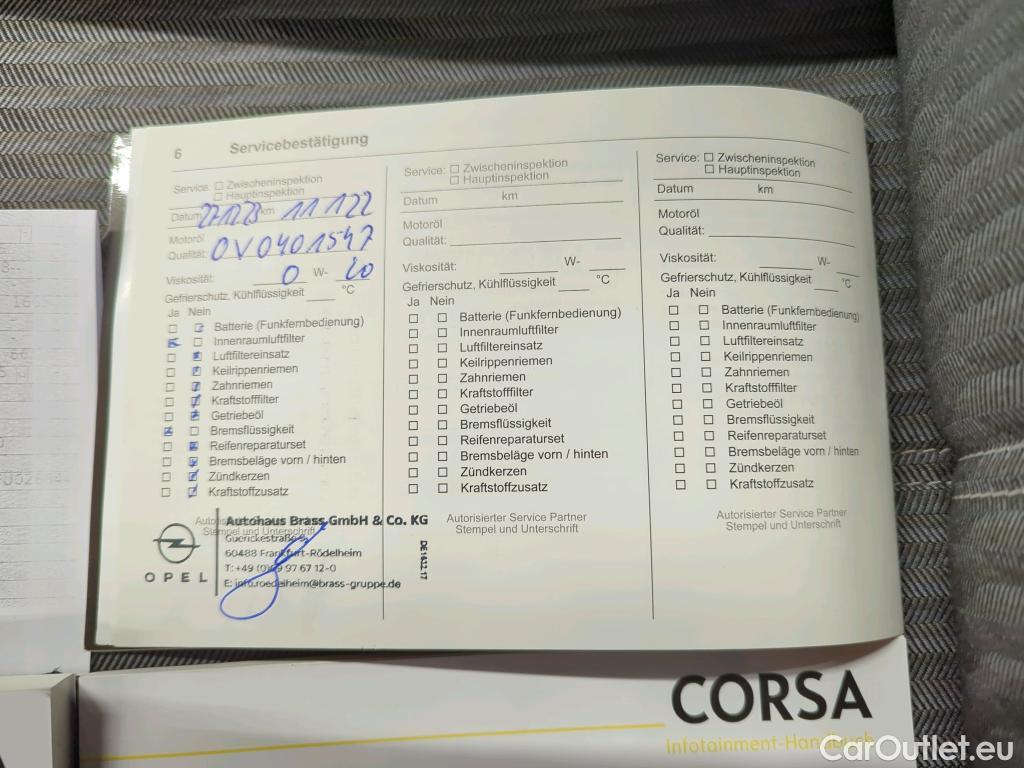 6 Servicebestätigung
Service: ☐ Zwischeninspektion
☐ Hauptinspektion
Datum km 11 122
Motoröl
Qualität: OV0401547
Viskosität: 0 W- 20
Gefrierschutz, Kühlflüssigkeit °C
Ja Nein
Batterie (Funkfernbedienung)
Innenraumluftfilter
Luftfiltereinsatz
Keilrippenriemen
Zahnriemen
Kraftstofffilter
Getriebeöl
Bremsflüssigkeit
Reifenreparaturset
Bremsbeläge vorn / hinten
Zündkerzen
Kraftstoffzusatz
Stempel und Unterschrift
OPEL
Autohaus Brass GmbH & Co. KG
Guerickestraße
60488 Frankfurt-Rödelheim
T: +49 (0)69 97 67 12-0
E: info.roedelheim@brass-gruppe.de
Service: ☐ Zwischeninspektion
☐ Hauptinspektion
Datum km
Motoröl
Qualität:
Viskosität: W-
Gefrierschutz, Kühlflüssigkeit °C
Ja Nein
Batterie (Funkfernbedienung)
Innenraumluftfilter
Luftfiltereinsatz
Keilrippenriemen
Zahnriemen
Kraftstofffilter
Getriebeöl
Bremsflüssigkeit
Reifenreparaturset
Bremsbeläge vorn / hinten
Zündkerzen
Kraftstoffzusatz
Autorisierter Service Partner
Stempel und Unterschrift
Service: ☐ Zwischeninspektion
☐ Hauptinspektion
Datum km
Motoröl
Qualität:
Viskosität: W-
Gefrierschutz, Kühlflüssigkeit °C
Ja Nein
Batterie (Funkfernbedienung)
Innenraumluftfilter
Luftfiltereinsatz
Keilrippenriemen
Zahnriemen
Kraftstofffilter
Getriebeöl
Bremsflüssigkeit
Reifenreparaturset
Bremsbeläge vorn / hinten
Zündkerzen
Kraftstoffzusatz
Autorisierter Service Partner
Stempel und Unterschrift
CORSA
Infotainment-Handbuch
CarOutlet.eu